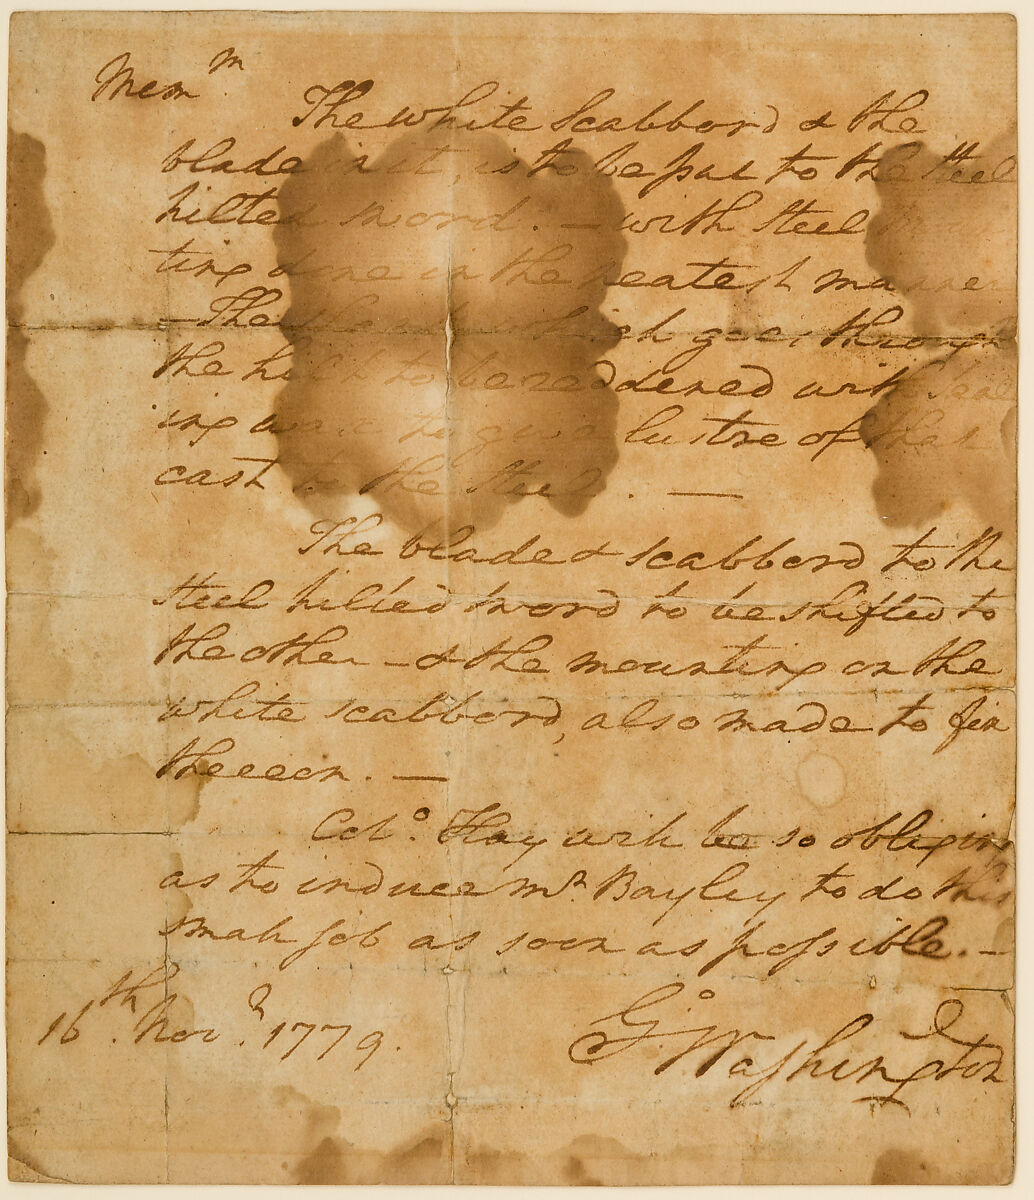 Mem^m.
The white Scabbord & the
blade in it, is to be put to the steel
hilted sword. — with steel moun
ting done in the neatest manner
– The which goes through
the hilt to be reddened with seal
ing wax to give lustre of that
cast to the steel. —
The blade & scabbord to the
steel hilted sword to be shifted to
the other – & the mounting on the
white scabbord, also made to fit
thereon. —
Col^o. Hay will be so obliging
as to induce M^r. Bayley to do this
small job as soon as possible. –
16^th. Nov^r. 1779.
G^o: Washington